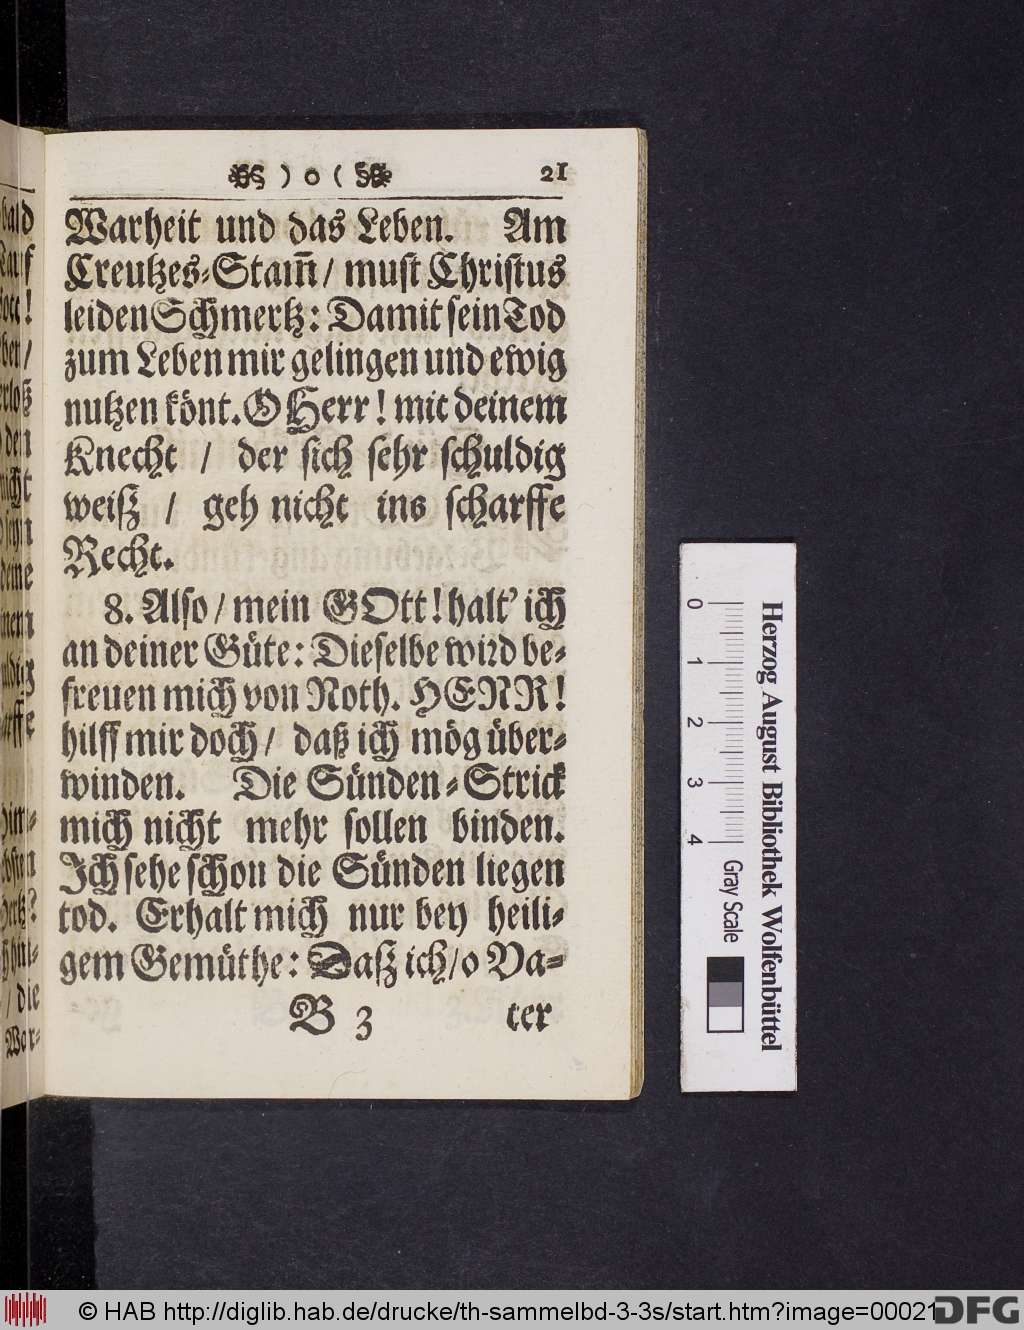 ) o ( 21
Warheit und das Leben. Am
Creutzes-Stam̅ / must Christus
leiden Schmertz: Damit sein Tod
zum Leben mir gelingen und ewig
nutzen könt. O Herr! mit deinem
Knecht / der sich sehr schuldig
weiß / geh nicht ins scharffe
Recht.
8. Also / mein GOtt! halt' ich
an deiner Güte: Dieselbe wird be-
freuen mich von Noth. HERR!
hilff mir doch / daß ich mög über-
winden. Die Sünden-Strick
mich nicht mehr sollen binden.
Ich sehe schon die Sünden liegen
tod. Erhalt mich nur bey heili-
gem Gemüthe: Daß ich / o Va-
B 3 ter
0 1 2 3 4
Gray Scale
Herzog August Bibliothek Wolfenbüttel
© HAB http://diglib.hab.de/drucke/th-sammelbd-3-3s/start.htm?image=00021
DFG